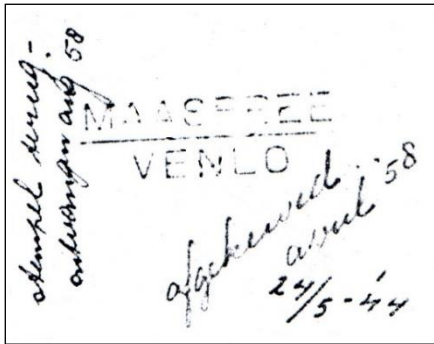 stempel terug-
ontvangen aug 58
MAASBREE
VENLO
afgekeurd
april 58
24/5-'44